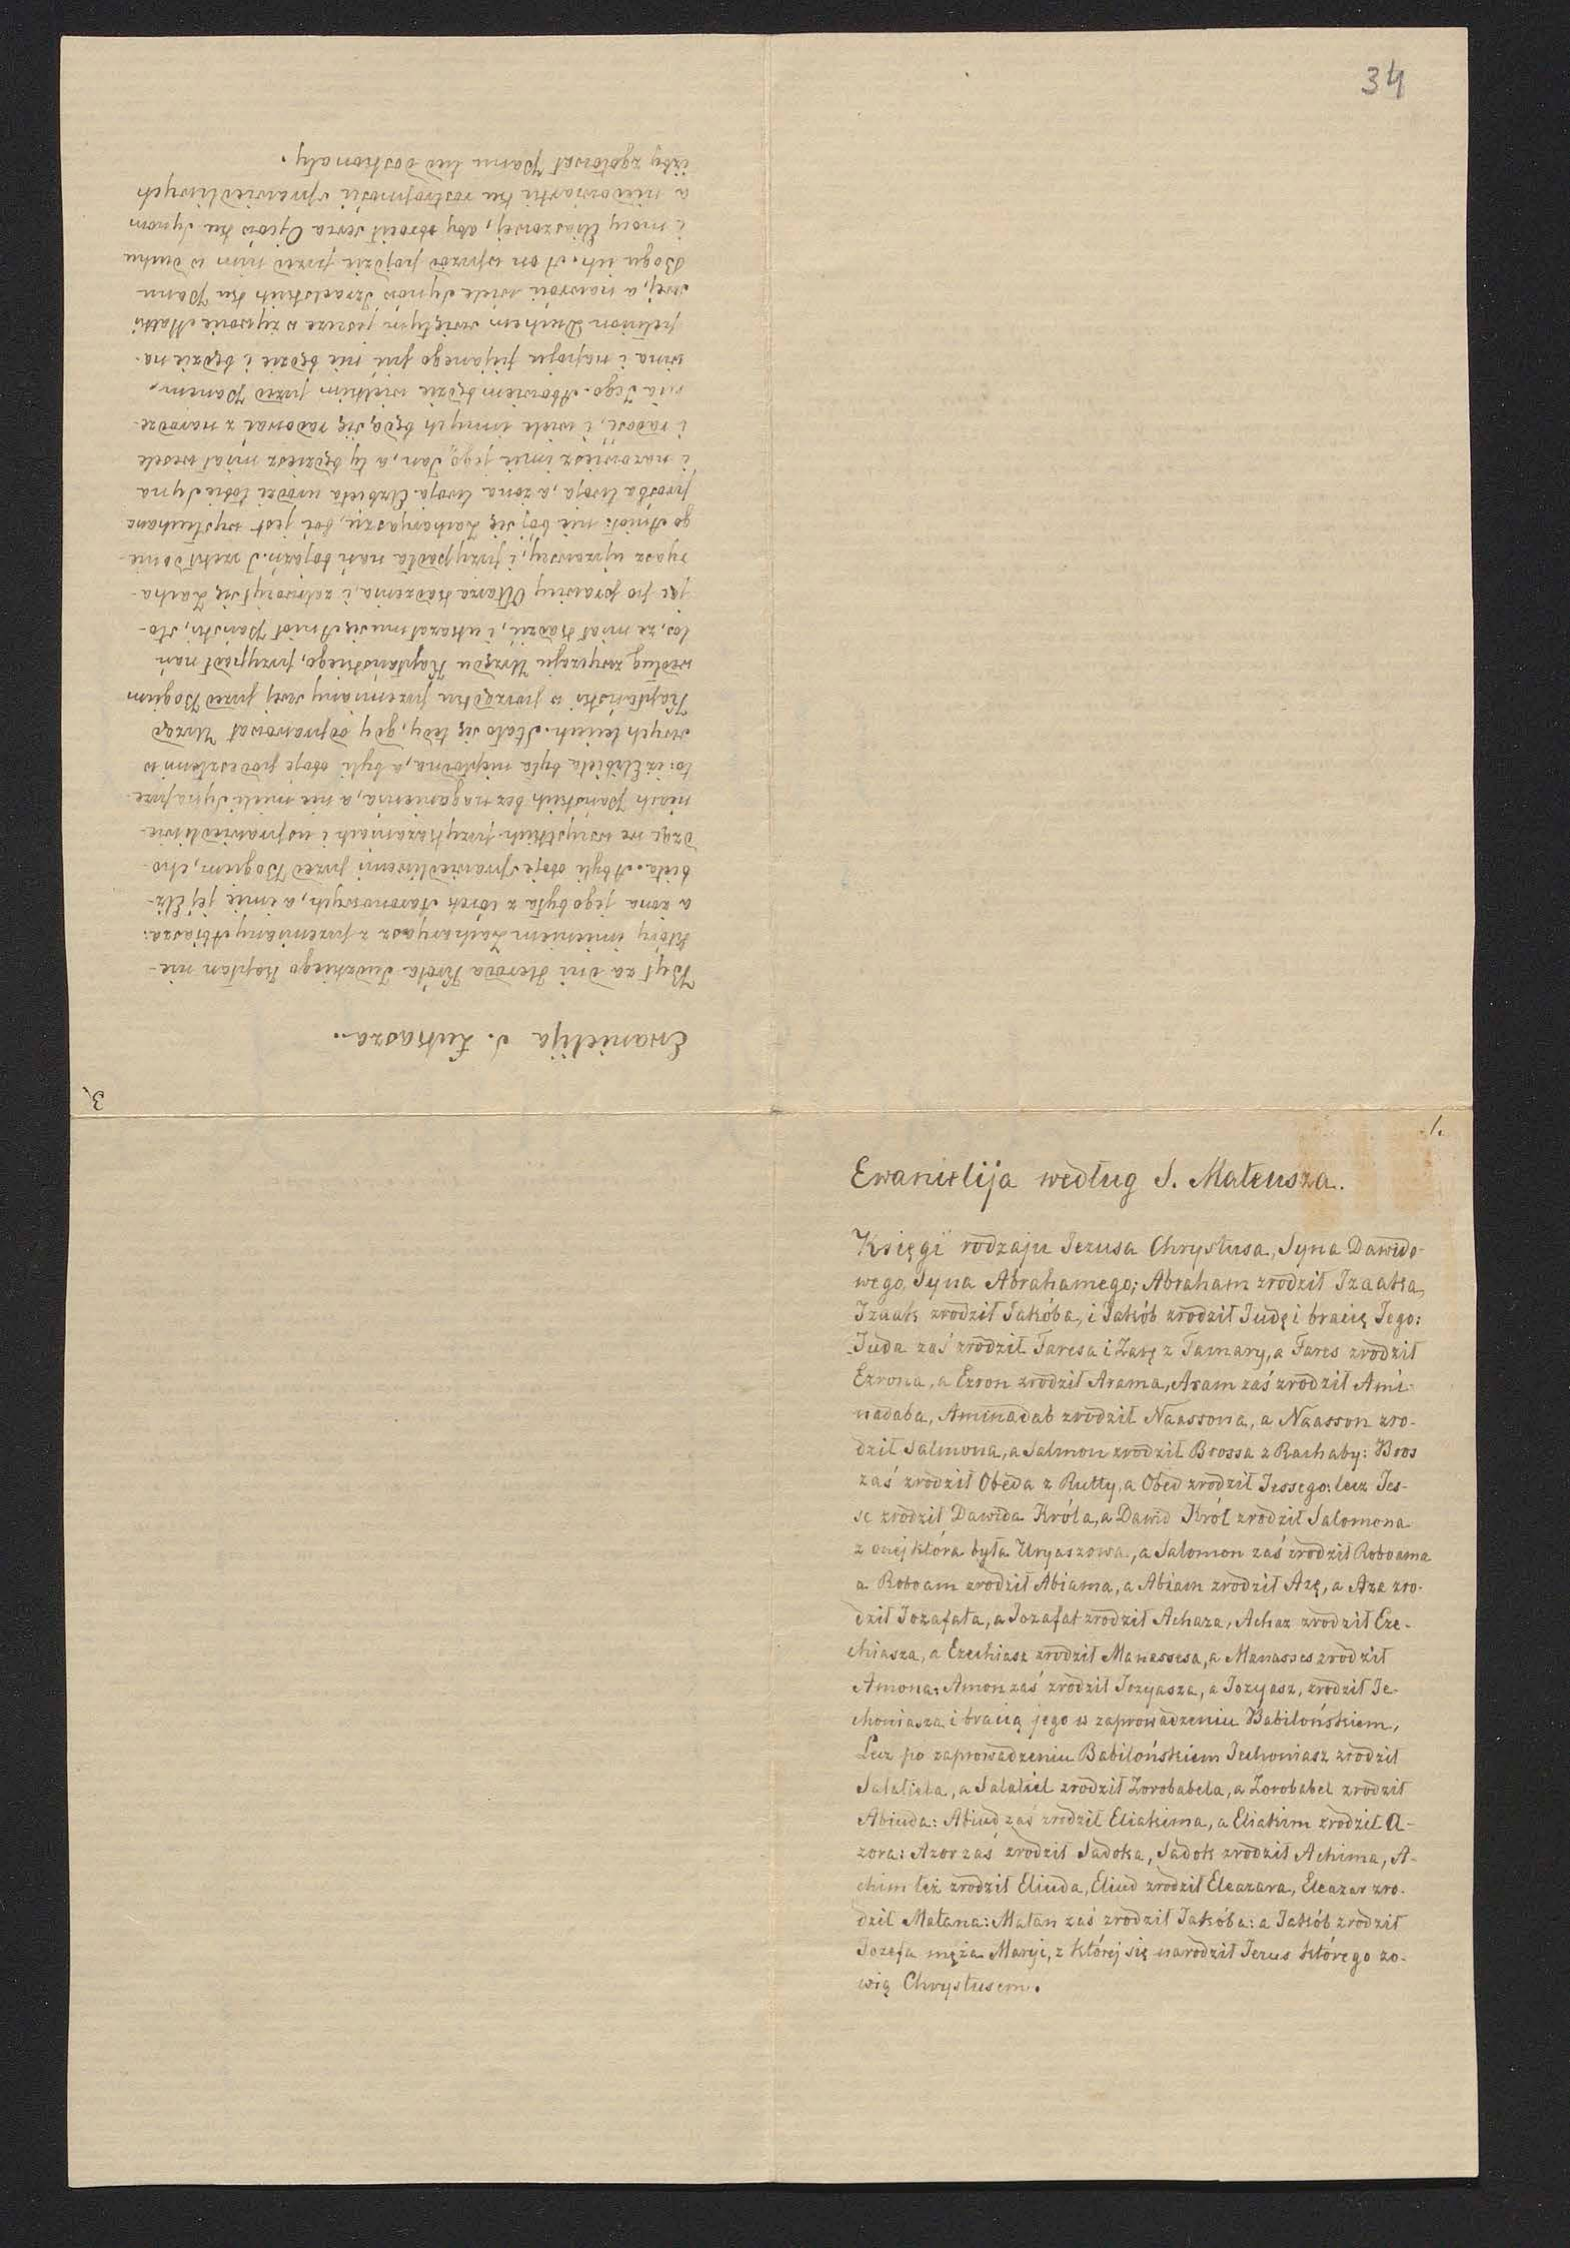 34
1.
Ewanielija według S. Mateusza.
Księgi rodzaju Jezusa Chrystusa, Syna Dawido-
wego, Syna Abrahamego; Abraham zrodził Izaaka,
Izaak zrodził Jakóba, i Jakób zrodził Judę i bracię Jego:
Juda zaś zrodził Faresa i Zarę z Tamary, a Fares zrodził
Ezrona, a Ezron zrodził Arama, Aram zaś zrodził Ami-
nadaba, Aminadab zrodził Naassona, a Naasson zro-
dził Salmona, a Salmon zrodził Boossa z Rachaby: Boos
zaś zrodził Obeda z Rutty, a Obed zrodził Jessego: lecz Jes-
se zrodził Dawida Króla, a Dawid Król zrodził Salomona
z onej która była Uryaszowa, a Salomon zaś zrodził Roboama
a Roboam zrodził Abiama, a Abiam zrodził Azę, a Aza zro-
dził Jozafata, a Jozafat zrodził Achaza, Achaz zrodził Eze-
chiasza, a Ezechiasz zrodził Manassesa, a Manasses zrodził
Amona: Amon zaś zrodził Jozyasza, a Jozyasz, zrodził Je-
choniasza i bracią jego w zaprowadzeniu Babilońskiem,
Lecz po zaprowadzeniu Babilońskiem Jechoniasz zrodził
Salatiela, a Salatiel zrodził Zorobabela, a Zorobabel zrodził
Abiuda: Abiud zaś zrodził Eliakima, a Eliakim zrodził A-
zora: Azor zaś zrodził Sadoka, Sadok zrodził Achima, A-
chim też zrodził Eliuda, Eliud zrodził Eleazara, Eleazar zro-
dził Matana: Matan zaś zrodził Jakóba: a Jakób zrodził
Jozefa męża Maryi, z której się narodził Jezus którego zo-
wią Chrystusem.
3,
Ewanielija S. Łukasza.
Był za dni Heroda Króla Judzkiego Kapłan nie-
który imieniem Zacharyasz z przemiany Abiasza:
a żona jego była z córek Aaronowych, a imie jéj Elż-
bieta. A byli oboje sprawiedliwemi przed Bogiem, cho-
dząc we wszystkich przykazaniach i usprawiedliwie-
niach Pańskich bez naganienia, a nie mieli Syna prze-
to: iż Elżbieta była niepłodna, a byli oboje podeszłemi w
swych leciech. Stało się tedy, gdy odprawował Urząd
Kapłański w porządku przemiany swej przed Bogiem
według zwyczaju Urzędu Kapłańskiego, przypadł nań
los, że miał kadzić, i ukazał mu się Anioł Pański, sto-
jąc po prawicy Ołtarza kadzenia, i zatrwożył się Zacha-
ryasz ujrzawszy, i przypadła nań bojaźń. I rzekł do nie-
go Anioł: nie bój się Zacharyaszu, boć jest wysłuchana
prośba twoja, a żona twoja Elżbieta urodzi tobie Syna
i nazowiesz imie jego Jan, a ty będziesz miał wesele
i radość, i wiele innych będą się radować z narodze-
nia Jego. Abowiem będzie wielkim przed Panem,
wina i napoju pijanego pić nie będzie i będzie na-
pełnion Duchem świętym jeszcze w żywocie Matki
swéj, a nawróci wiele Synów Izraelskich ku Panu
Bogu ich. A on wprzód pojdzie przed nim w duchu
i mocy Eliaszowéj, aby obrócił serca Ojców ku Synom
a niedowiarki ku rostropności sprawiedliwych
iżby zgotował Panu lud doskonały.